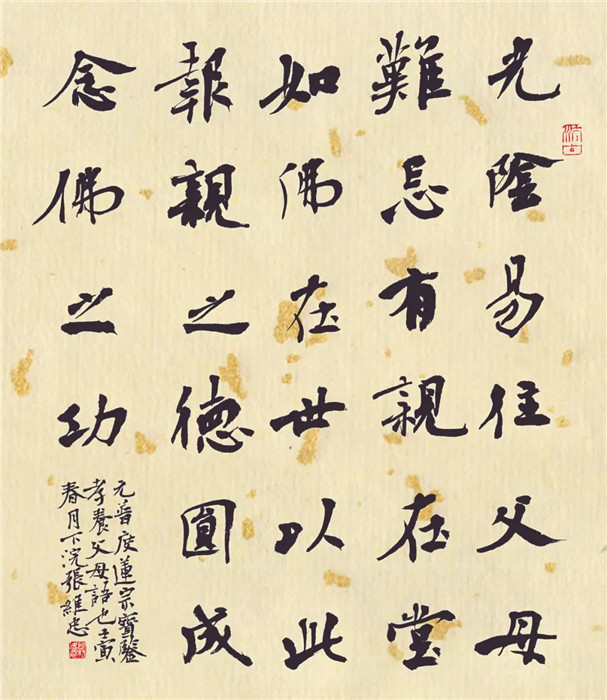 光陰易往父母
難忘有親在堂
如佛在世以此
報親之德圓成
念佛之功
元普度蓮宗寶鑒
孝養父母語也壬寅
春月下浣張維忠